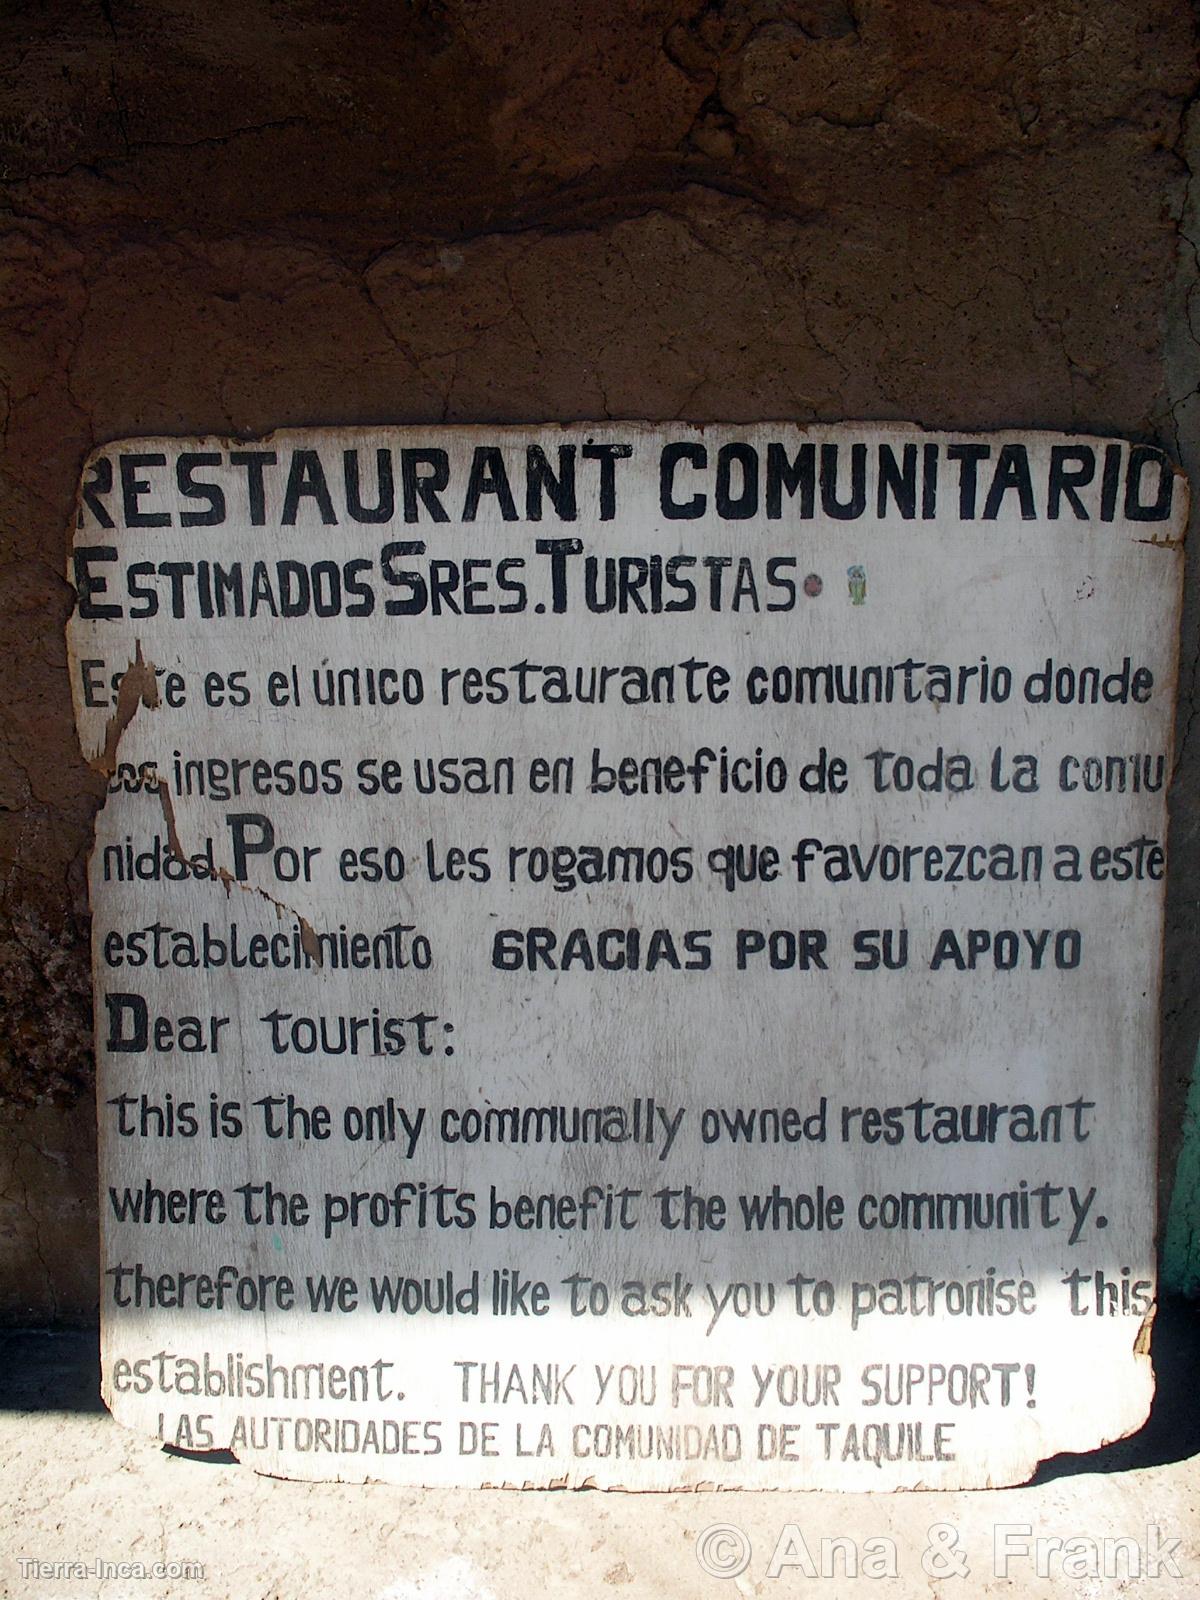 RESTAURANT COMUNITARIO
ESTIMADOS SRES. TURISTAS
Este es el único restaurante comunitario donde
los ingresos se usan en beneficio de toda la comu
nidad. Por eso les rogamos que favorezcan a este
establecimiento GRACIAS POR SU APOYO
Dear tourist:
this is the only communally owned restaurant
where the profits benefit the whole community.
therefore we would like to ask you to patronise this
establishment. THANK YOU FOR YOUR SUPPORT!
LAS AUTORIDADES DE LA COMUNIDAD DE TAQUILE
© Ana & Frank
Tierra-Inca.com